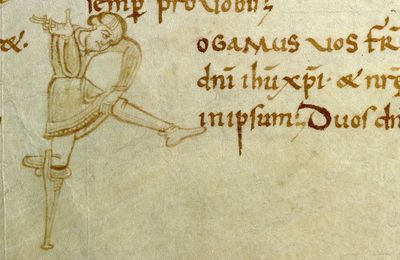 semp̄ pro vobis;
&.
OGAMUS VOS FR̄
dn̄i ihū xp̄i· & nr̄ę
in ipsum; Duos dn